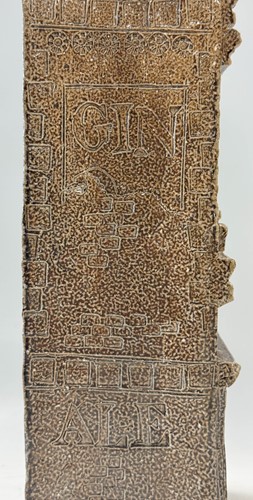 GIN
ALE